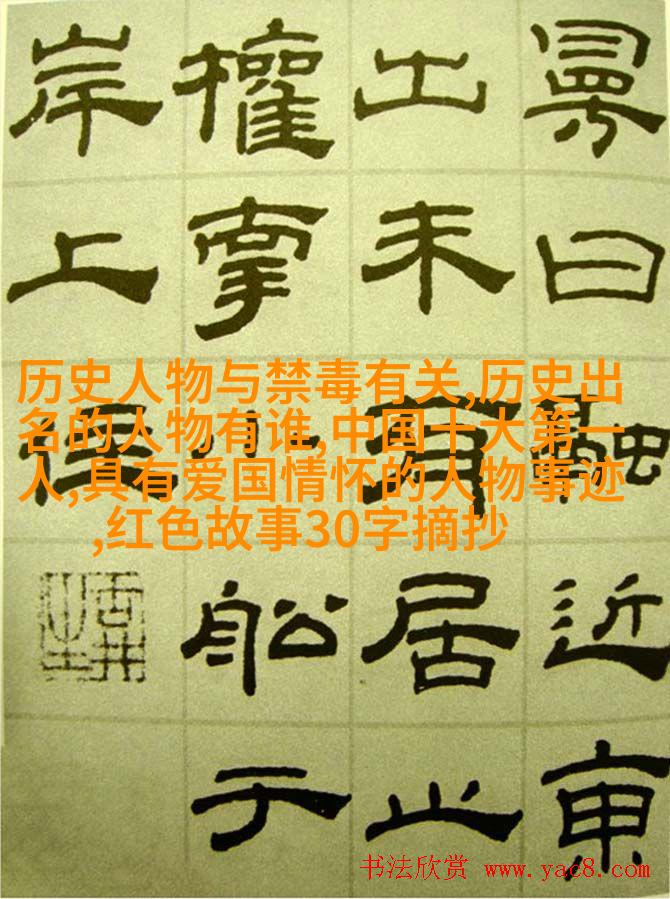 曰融近東
出未有居止
權小舩于
岸上住
历史人物与禁毒有关,历史出
名的人物有谁,中国十大第一
人,具有爱国情怀的人物事迹
,红色故事30字摘抄
书法欣赏 www.yac8.com